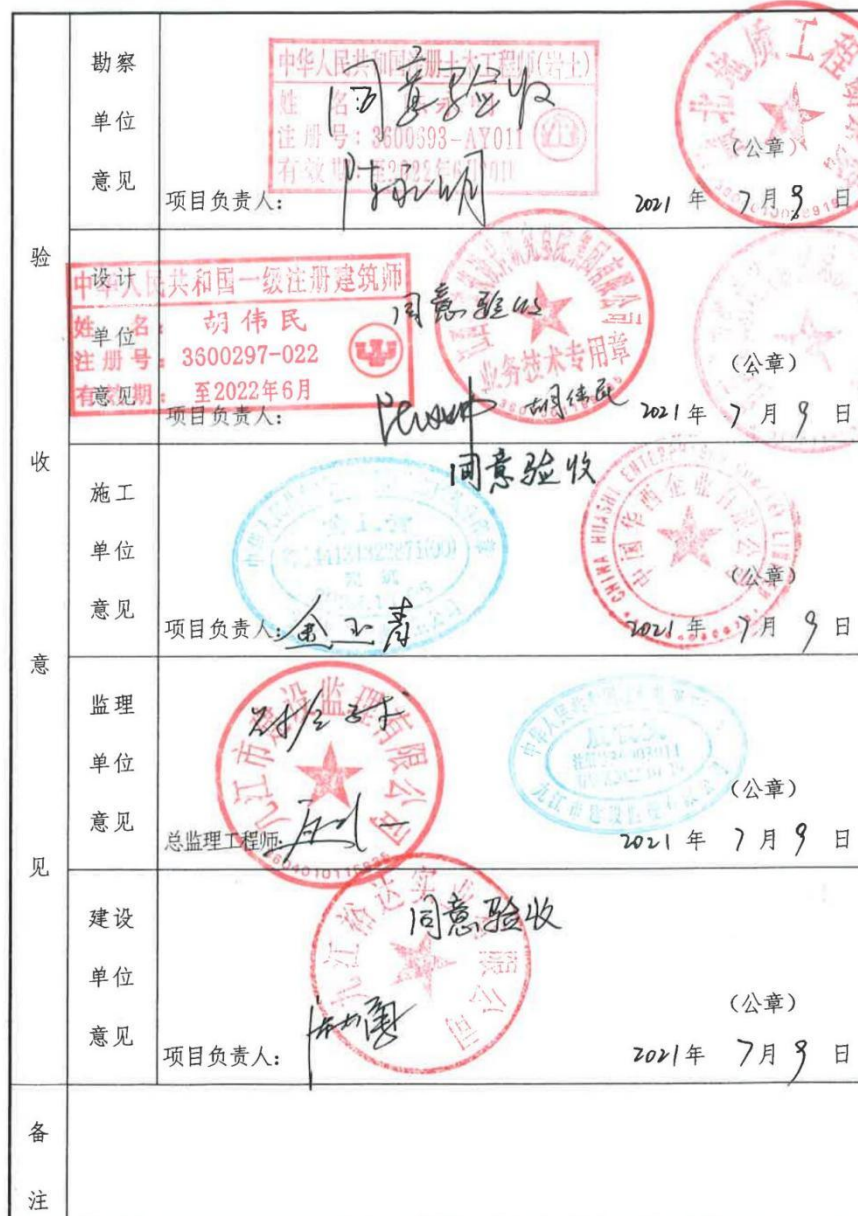 验收意见
勘察单位意见
同意验收
中华人民共和国注册土木工程师(岩土)
姓 名
注册号：3600693-AY011
有效期：至2022年6月
项目负责人：
（公章）
2021 年 7 月 9 日
设计单位意见
中华人民共和国一级注册建筑师
姓 名：胡伟民
注册号：3600297-022
有效期：至2022年6月
同意验收
业务技术专用章
项目负责人：
胡伟民
（公章）
2021 年 7 月 9 日
施工单位意见
同意验收
CHINA HUASHI ENTERPRISES COMPANY LIMITED
中国华西企业有限公司
项目负责人：金玉青
（公章）
2021 年 7 月 9 日
监理单位意见
九江市建设监理有限公司
总监理工程师：
（公章）
2021 年 7 月 9 日
建设单位意见
同意验收
九江裕达实业有限公司
项目负责人：
（公章）
2021 年 7 月 9 日
备注